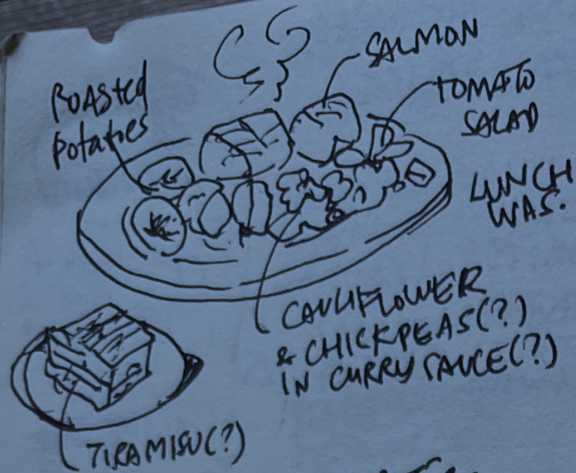 SALMON
ROASTED
POTATOES
TOMATO
SALAD
LUNCH
WAS:
CAULIFLOWER
& CHICKPEAS(?)
IN CURRY SAUCE(?)
TIRAMISU(?)